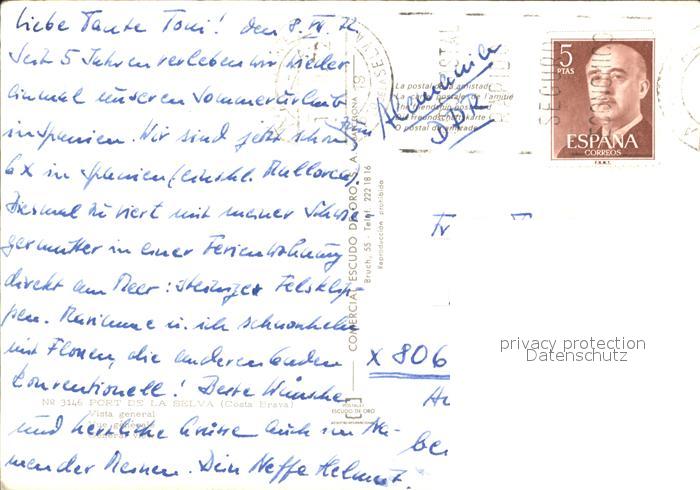 Liebe Tante Toni! den 8. IV. 72
Seit 5 Jahren verleben wir wieder
einmal unseren Sommerurlaub
in Spanien. Wir sind jetzt schon zum
6 x in Spanien (einschl. Mallorca).
Diesmal zu viert mit meiner Schwie
germutter in einer Ferienwohnung
direkt am Meer: steiniger Felsklip-
pen. Marianne u. ich schnorcheln
mit Flossen, die anderen baden
konventionell! Beste Wünsche
und herzliche Grüsse auch im Na-
men der Meinen. Dein Neffe Helmut.
Alemania
DDR
x 806
La postal de la amistad
La carte postale de l'amitié
The friendship postcard
Die Freundschaftskarte
O postal da amizade
5
PTAS
ESPAÑA
CORREOS
F.N.M.T.
COMERCIAL ESCUDO DE ORO, S. A.
Bruch, 55 - Telef. 222 18 16
Reproducción prohibida
Nº 3146 PORT DE LA SELVA (Costa Brava)
Vista general
Vue générale
General view
POSTALES
ESCUDO DE ORO
privacy protection
Datenschutz